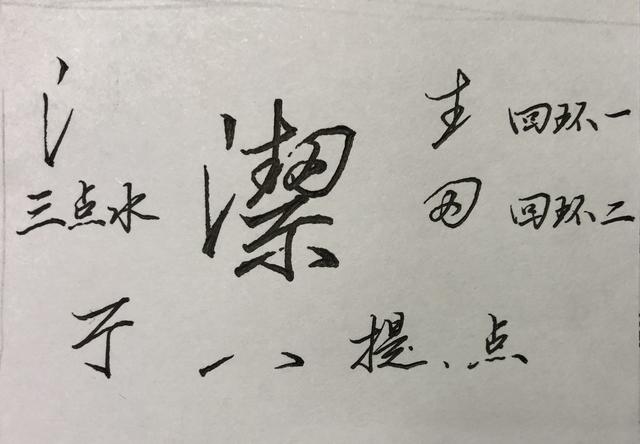 氵 潔 主 回环一
三点水 回环二
提、点